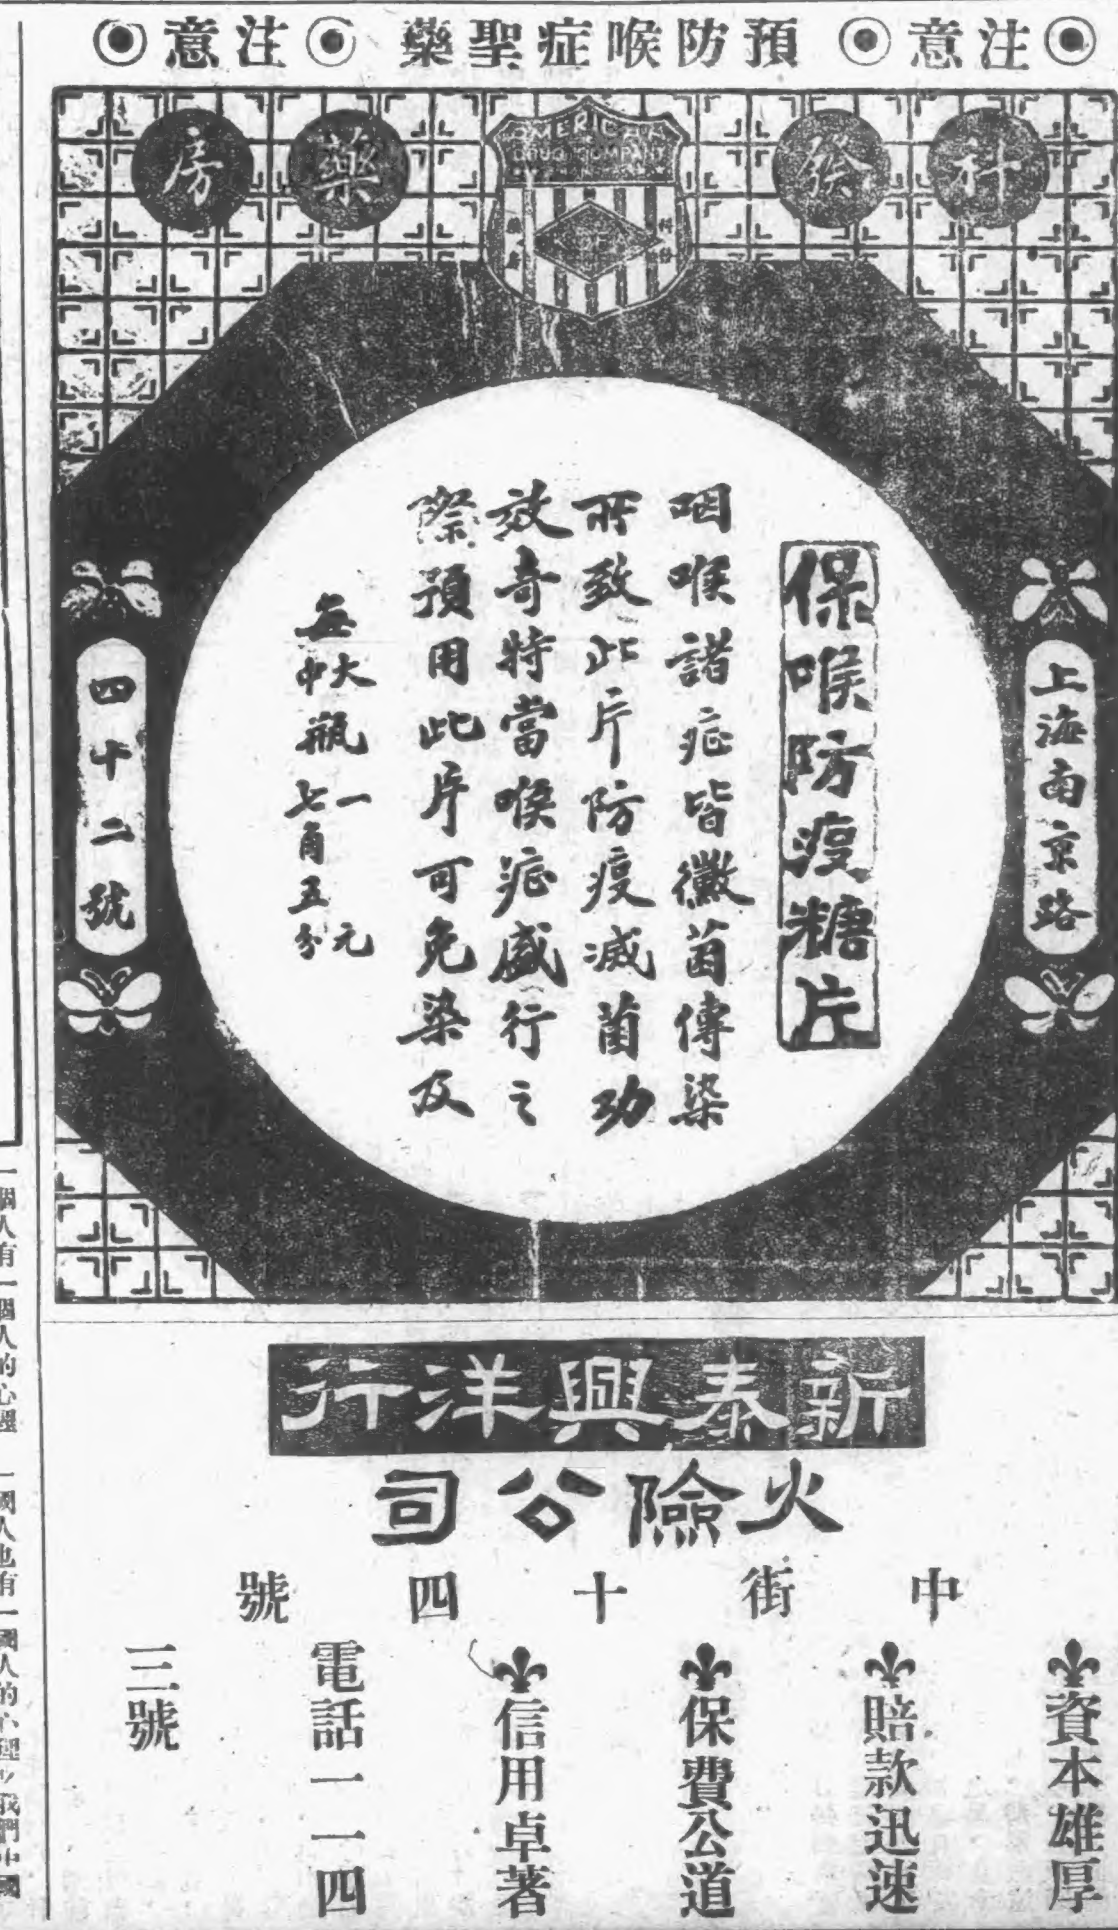 ◉注意◉預防喉症聖藥◉注意◉
科發藥房
AMERICAN
DRUG COMPANY
科發
藥房
上海南京路
四十二號
保喉防疫糖片
咽喉諸症皆黴菌傳染
所致此片防疫滅菌功
效奇特當喉症盛行之
際預用此片可免染及
每大瓶一元
中瓶七角五分
新泰興洋行
火險公司
中街十四號
資本雄厚
賠款迅速
保費公道
信用卓著
電話一一四
三號
一個人有一個人的心理
一國人也有一國人的心理
我們中國